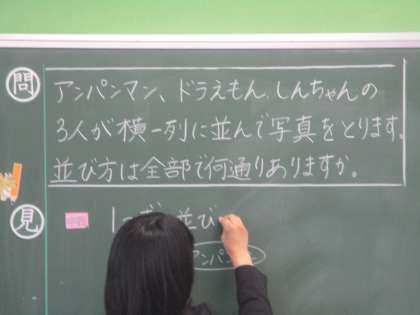 問
アンパンマン、ドラえもん、しんちゃんの
3人が横一列に並んで写真をとります。
並び方は全部で何通りありますか。
見
並び